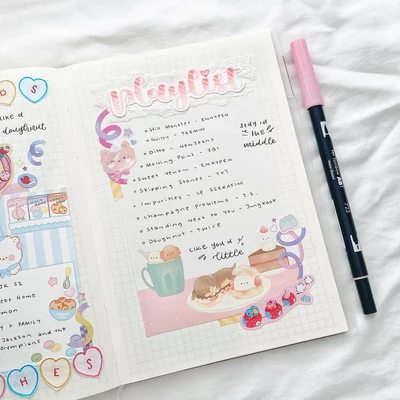 D S
IKE a
doughnut
JK S2
eet Home
mon
y x FAMILY
Jackson and the
olympians
H E S
playlist
Silo Monster - ENHYPEN
Guilty - TAEMIN
Ditto - NewJeans
Melting Point - ZB1
Sweet Venom - ENHYPEN
Skipping Stones - TXT
Impurities - LE SSERAFIM
champagne problems - T.S.
Standing Next to You - Jungkook
Doughnut - TWICE
stay in
the
middle
LIKE you a
little
723